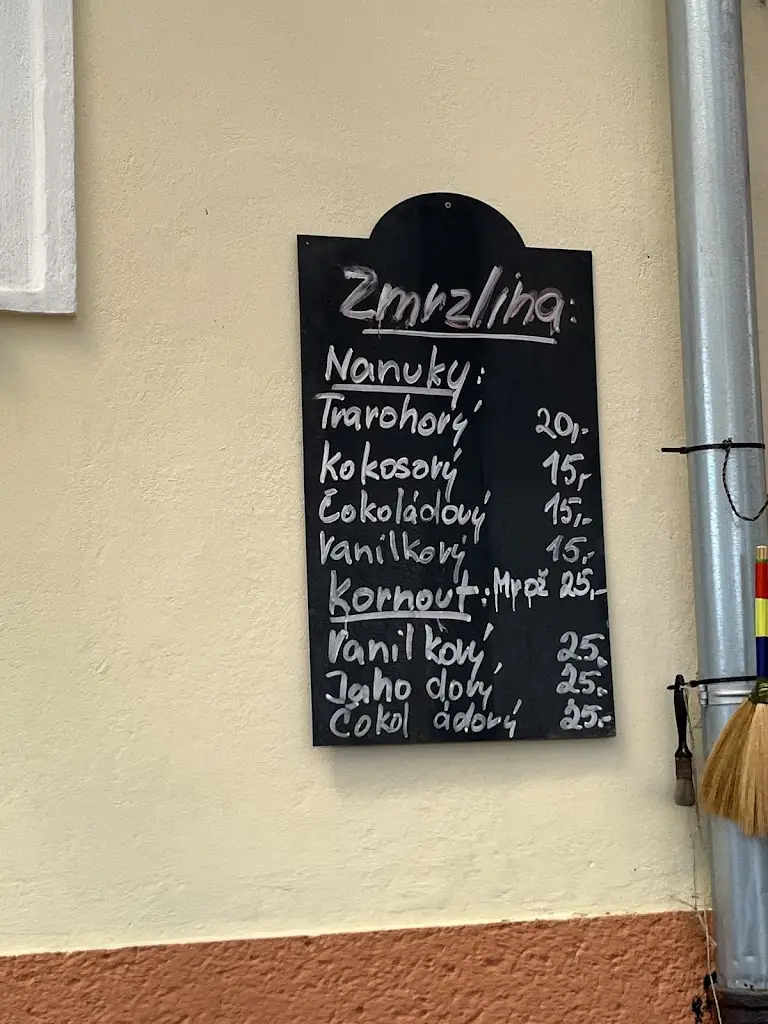 Zmrzlina:
Nanuky:
Tvarohový 20,-
Kokosový 15,-
Čokoládový 15,-
Vanilkový 15,-
Kornout: Mrož 25,-
Vanilkový 25,-
Jahodový 25,-
Čokoládový 25,-